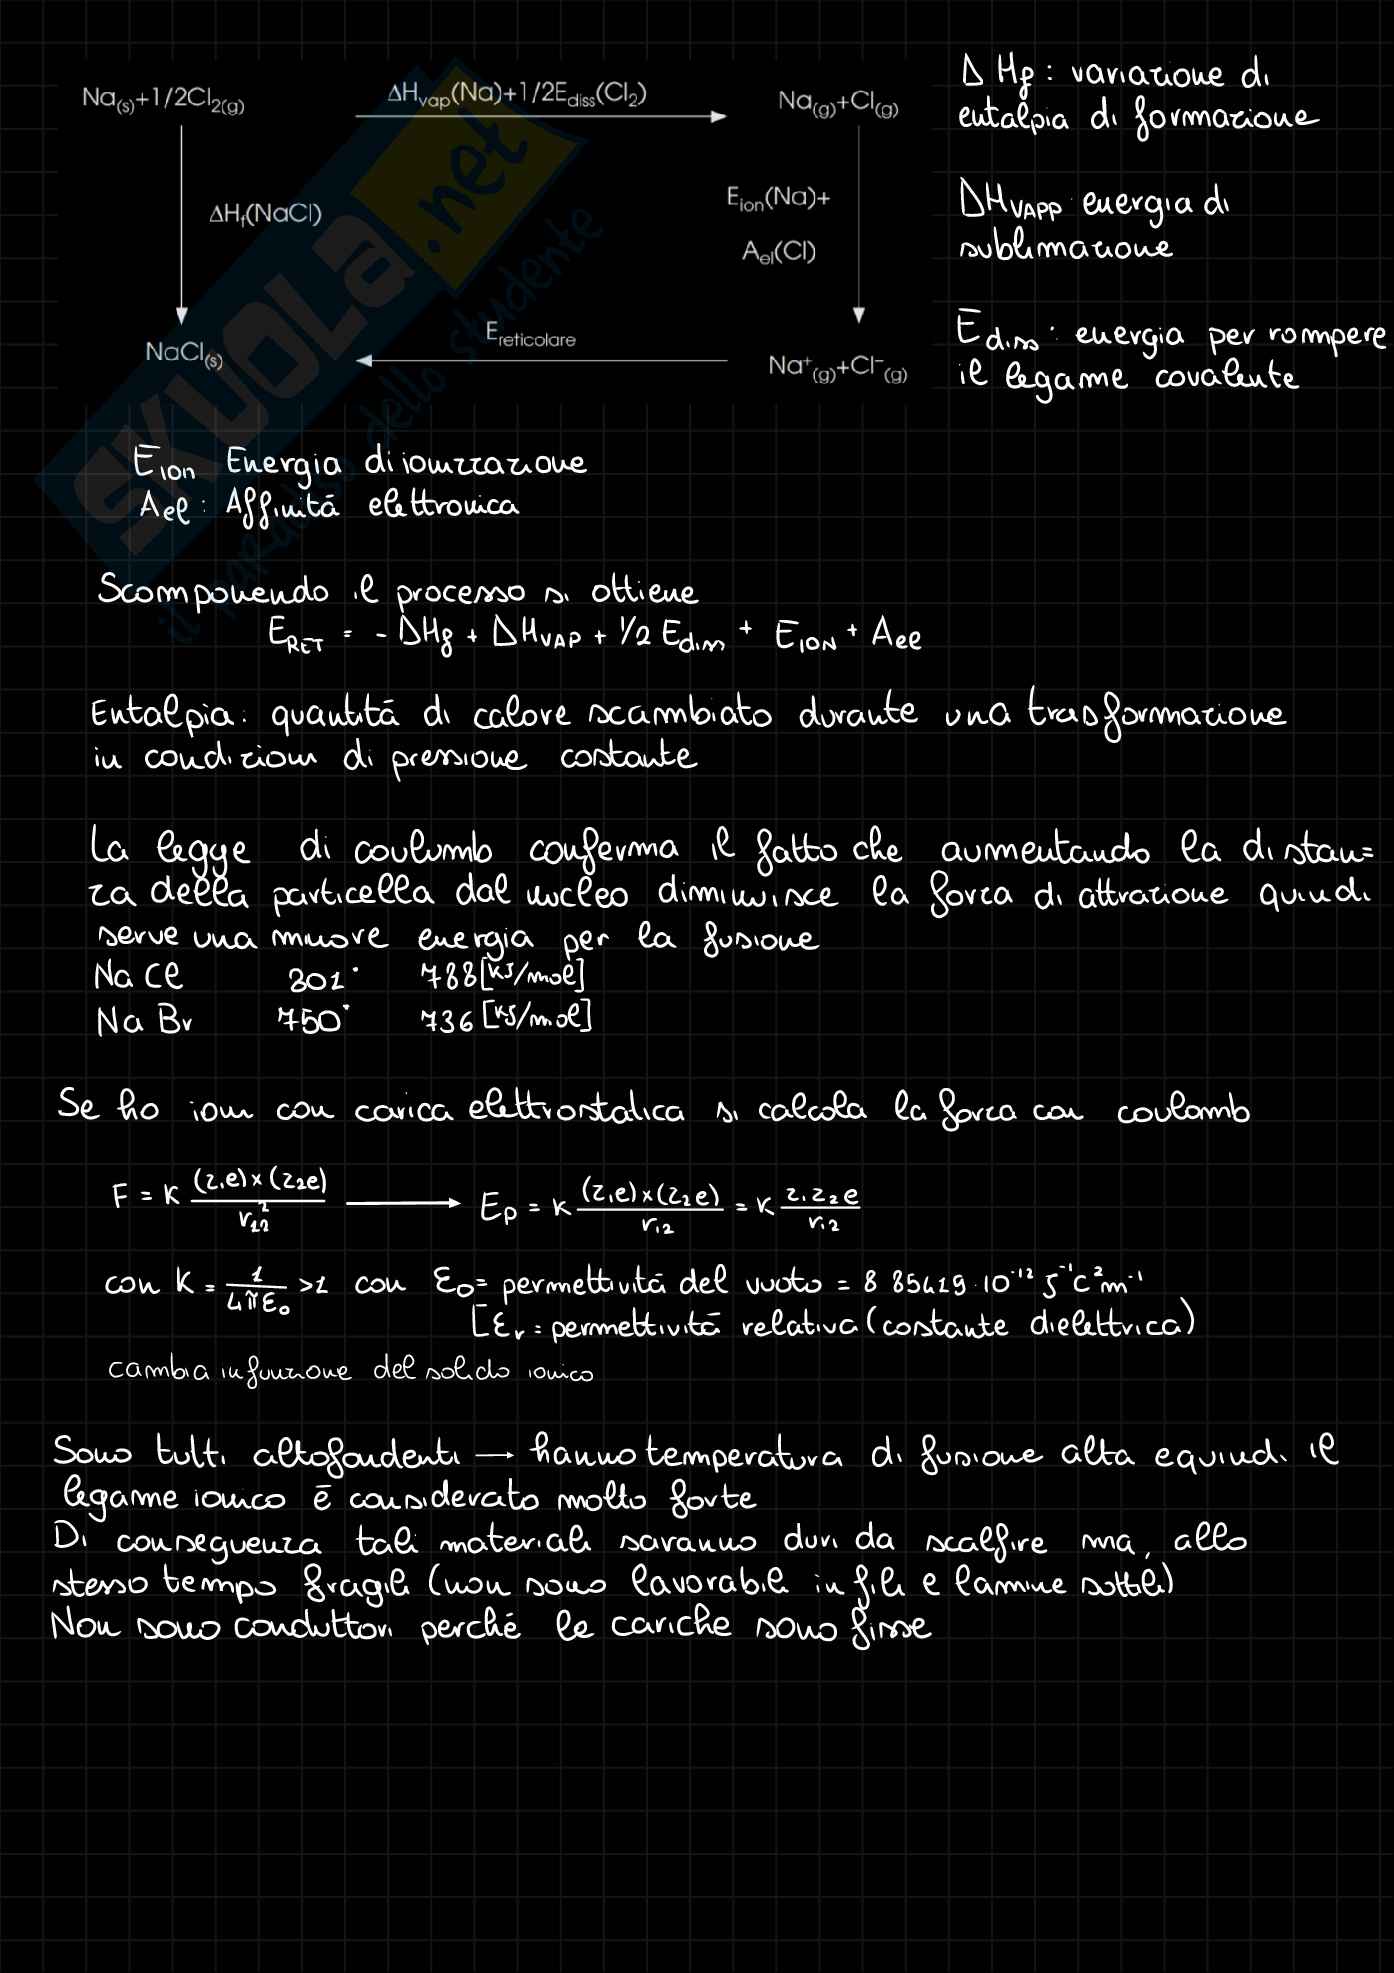 Na(s)+1/2Cl2(g)
ΔHvap(Na)+1/2Ediss(Cl2)
Na(g)+Cl(g)
ΔHf(NaCl)
Eion(Na)+
Ael(Cl)
NaCl(s)
Ereticolare
Na⁺(g)+Cl⁻(g)
ΔHf: variazione di
entalpia di formazione
ΔHVAPP energia di
sublimazione
Ediss: energia per rompere
il legame covalente
SKUOLA.net
il paradiso dello studente
Eion Energia di ionizzazione
Ael: Affinità elettronica
Scomponendo il processo si ottiene
ERET = - ΔHf + ΔHVAP + 1/2 Ediss + EION + Ael
Entalpia: quantità di calore scambiato durante una trasformazione
in condizioni di pressione costante
La legge di coulomb conferma il fatto che aumentando la distan=
za della particella dal nucleo diminuisce la forza di attrazione quindi
serve una minore energia per la fusione
NaCl 801° 788[kJ/mol]
NaBr 750° 736[kJ/mol]
Se ho ioni con carica elettrostatica si calcola la forza con coulomb
F = K (z1e)×(z2e) / r12² → Ep = K (z1e)×(z2e) / r12 = K z1z2e / r12
con K = 1/4πε0 >1 con ε0= permettività del vuoto = 8 85419·10⁻¹² J⁻¹C²m⁻¹
[εr = permettività relativa (costante dielettrica)
cambia in funzione del solido ionico
Sono tutti altofondenti → hanno temperatura di fusione alta e quindi il
legame ionico è considerato molto forte
Di conseguenza tali materiali saranno duri da scalfire ma, allo
stesso tempo fragili (non sono lavorabili in fili e lamine sottili)
Non sono conduttori perché le cariche sono fisse